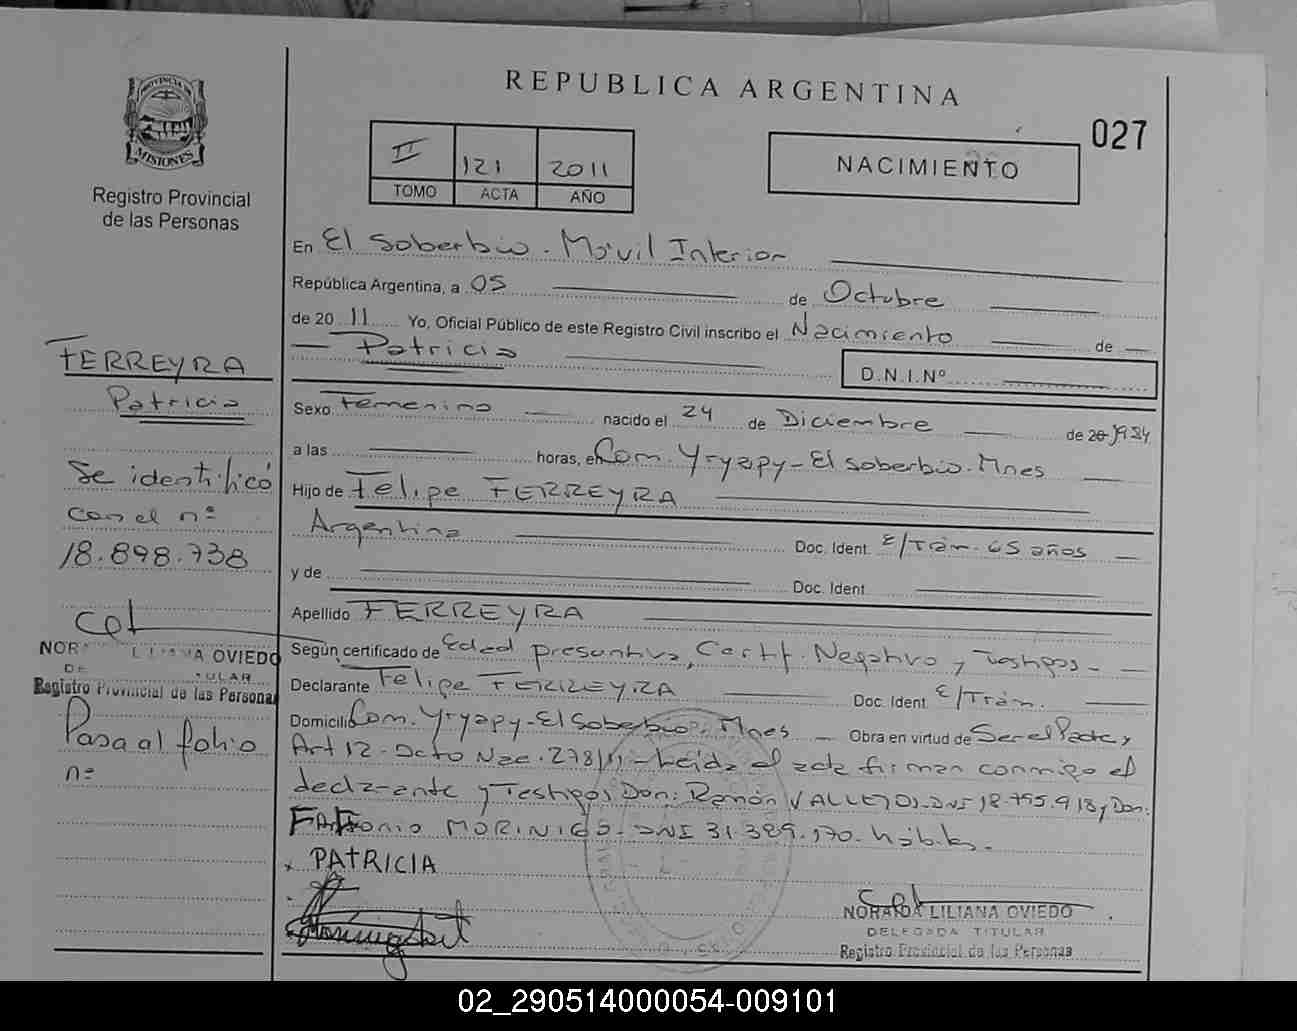 REPUBLICA ARGENTINA
027
PROVINCIA DE
MISIONES
Registro Provincial
de las Personas
II 121 2011
TOMO ACTA AÑO
NACIMIENTO
En El Soberbio - Móvil Interior
República Argentina, a 05 de Octubre
de 20 11 Yo, Oficial Público de este Registro Civil inscribo el Nacimiento de
Patricia
D.N.I.Nº
Sexo Femenino nacido el 24 de Diciembre de 20 1984
a las horas, en Com. Yryapy - El Soberbio - Mnes
Hijo de Felipe FERREYRA
Argentina Doc. Ident. E/Trám. 65 años
y de Doc. Ident.
Apellido FERREYRA
Según certificado de Edad presuntiva, Certif. Negativo y Testigos -
Declarante Felipe FERREYRA Doc. Ident. E/Trám.
Domicilio Com. Yryapy - El Soberbio, Mnes Obra en virtud de Ser el Padre y
Art 12 - Dcto Nac. 278/11 - Leída el acta firman conmigo el
declarante y Testigos Don: Ramón VALLEJOS - DNI 18.795.918 y Don:
MORINIGO - DNI 31.389.170 - hábiles.
PATRICIA
NORAIDA LILIANA OVIEDO
DELEGADA TITULAR
Registro Provincial de las Personas
FERREYRA
Patricia
Se identificó
con el nº
18.898.738
LILIANA OVIEDO
Registro Provincial de las Personas
Pasa al folio
nº
02_290514000054-009101